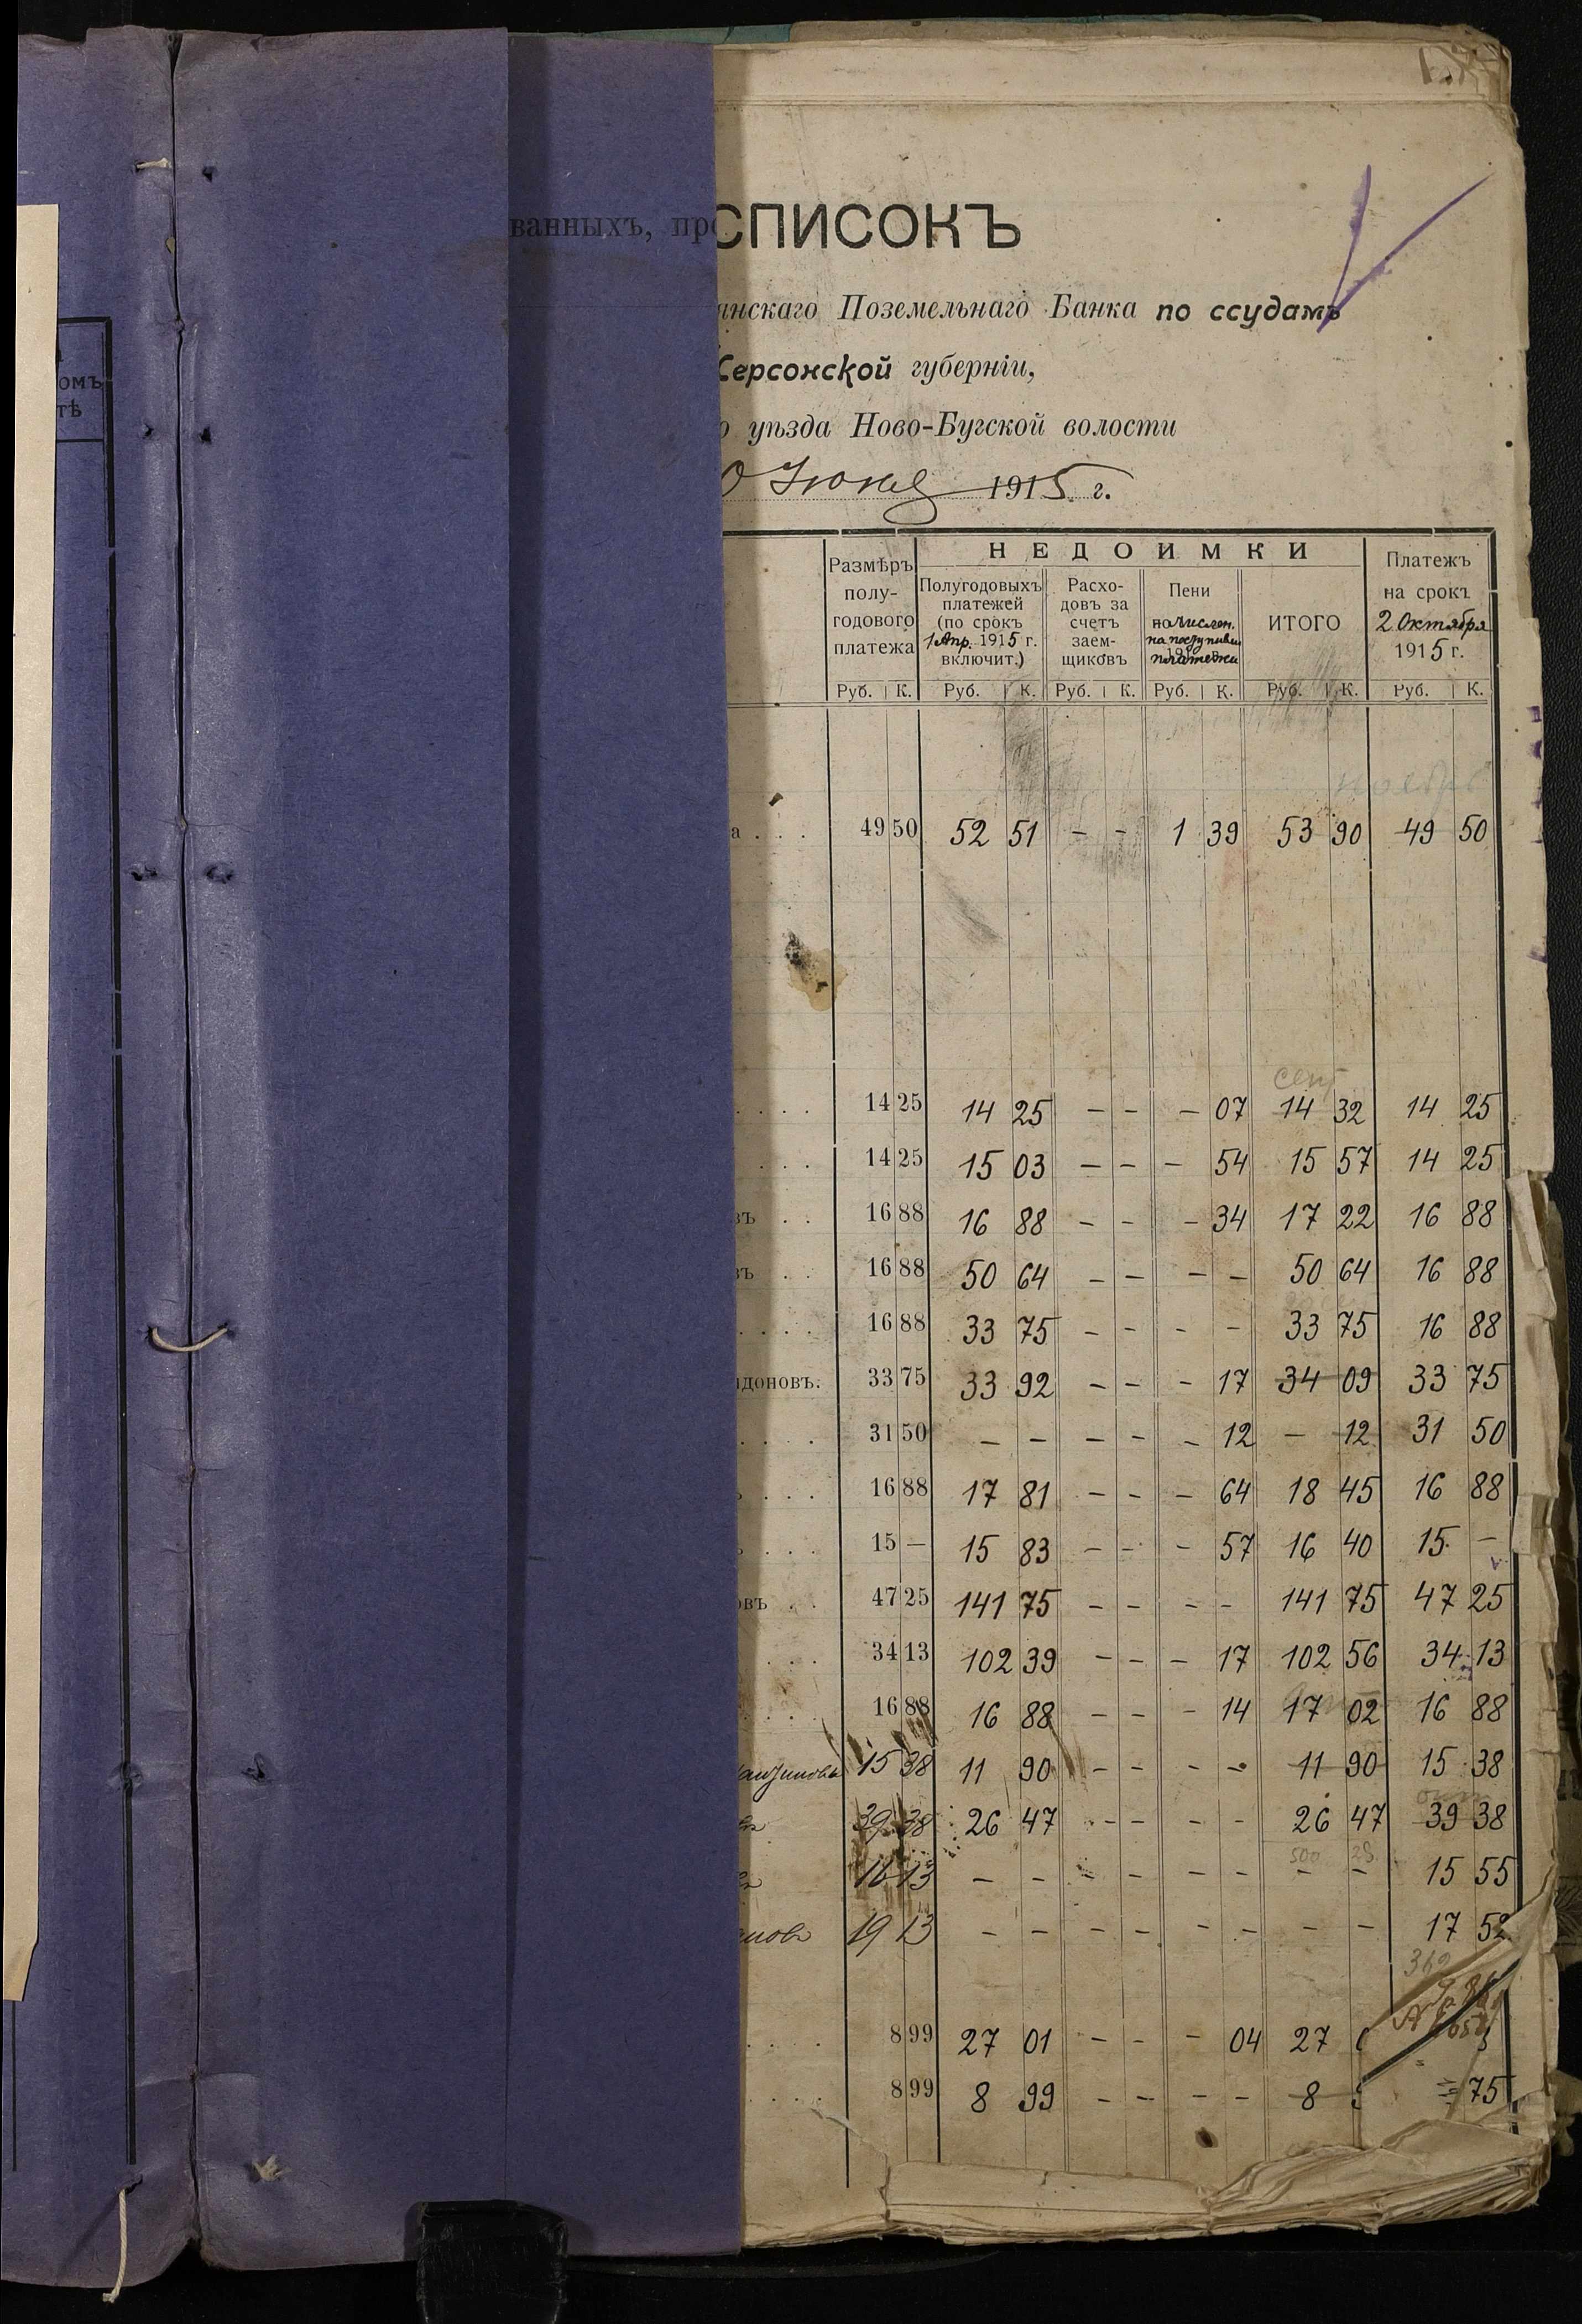 ванныхъ, про
СПИСОКЪ
янскаго Поземельнаго Банка по ссудамъ
Херсонской губерніи,
о уѣзда Ново-Бугской волости
0 Іюня 1915 г.
омъ
тѣ
Размѣръ полу-годового платежа
НЕДОИМКИ
Полугодовыхъ платежей (по срокъ 1 Апр. 1915 г. включит.)
Расхо-довъ за счетъ заем-щиковъ
Пени начислен. на поступивш. платежи
ИТОГО
Платежъ на срокъ 2 Октября 1915 г.
Руб. К. Руб. К. Руб. К. Руб. К. Руб. К. Руб. К.
нояб
а . . . 49 50 52 51 - - 1 39 53 90 49 50
сент
. . . . 14 25 14 25 - - - 07 14 32 14 25
. . . 14 25 15 03 - - - 54 15 57 14 25
въ . . 16 88 16 88 - - - 34 17 22 16 88
въ . . 16 88 50 64 - - - - 50 64 16 88
. . . . 16 88 33 75 - - - - 33 75 16 88
идоновъ. 33 75 33 92 - - - 17 34 09 33 75
. . . . 31 50 - - - - - 12 - 12 31 50
ъ . . . 16 88 17 81 - - - 64 18 45 16 88
ъ . . . 15 — 15 83 - - - 57 16 40 15 -
овъ . . 47 25 141 75 - - - - 141 75 47 25
. . . 34 13 102 39 - - - 17 102 56 34 13
. . . . 16 88 16 88 - - - 14 17 02 16 88
15 38 11 90 - - - - 11 90 15 38
окт
39 38 26 47 - - - - 26 47 39 38
500 28
16 13 - - - - - - - - 15 55
новъ 19 13 - - - - - - - - 17 52
362
. . . . 8 99 27 01 - - - 04 27
. . . . 8 99 8 99 - - - - 8 75